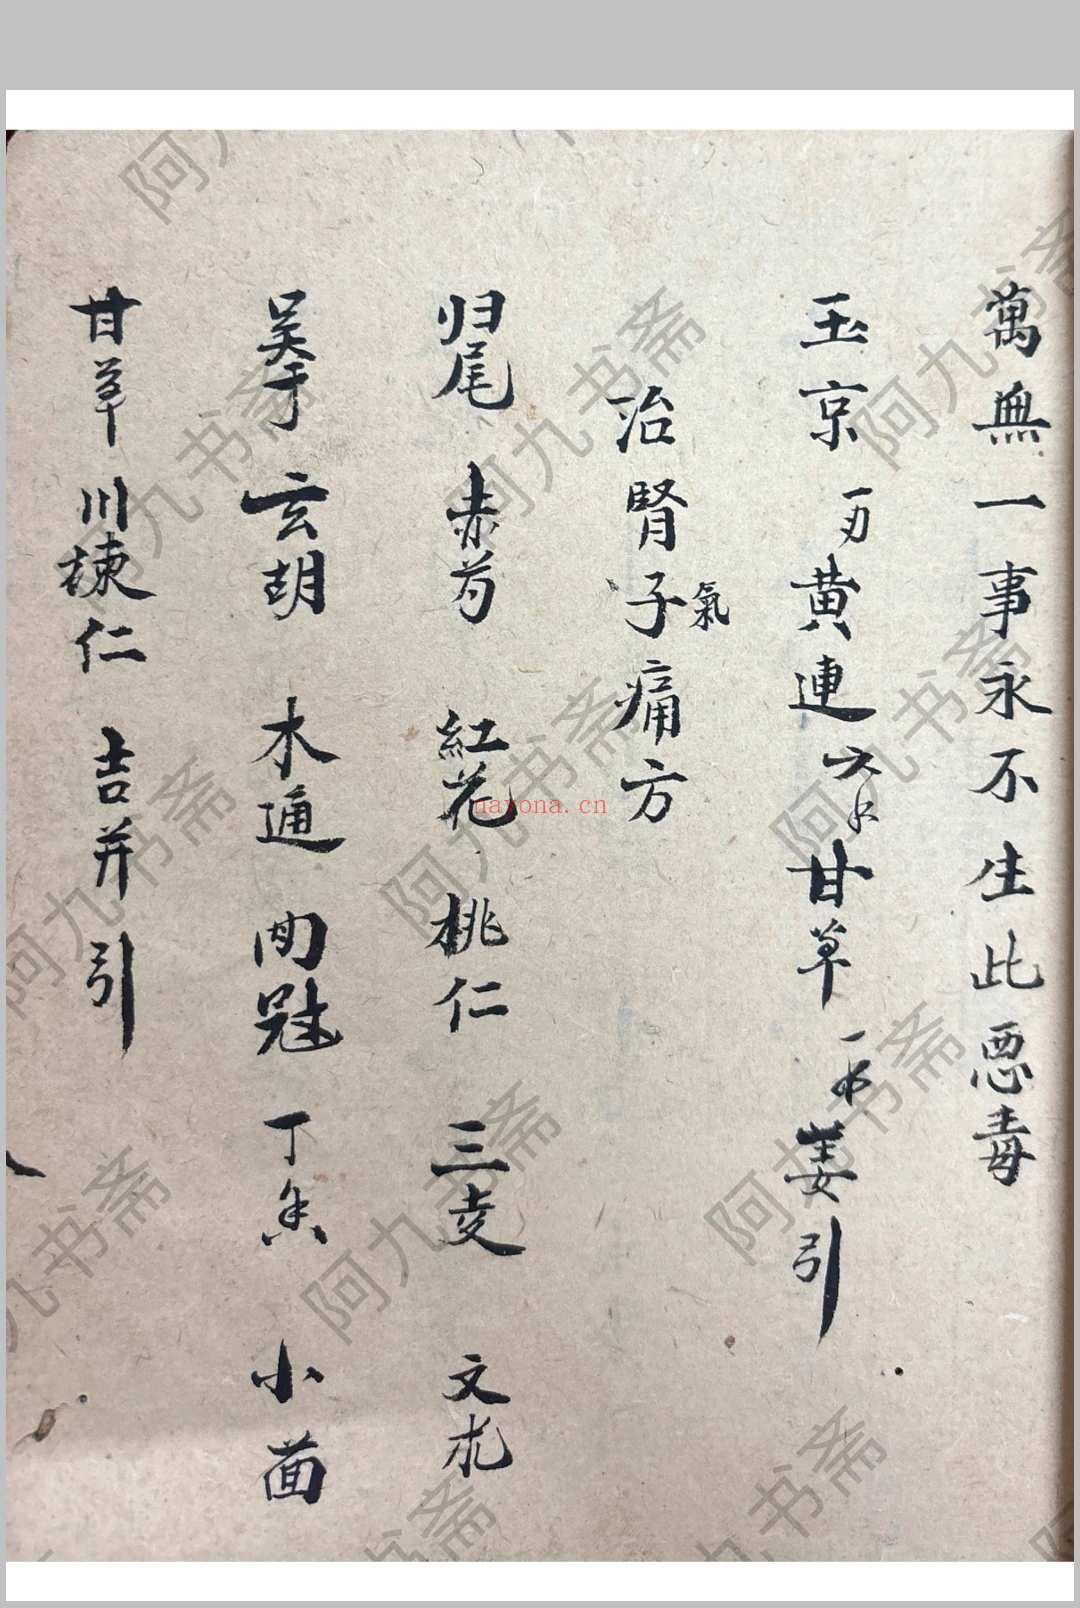 萬無一事永不生此恶毒
玉京一刃黄連六水甘草一水姜引
治腎子氣痛方
归尾 赤芍 紅花 桃仁 三夌 文朮
吴于 玄胡 木通 肉冦 丁香 小茴
甘草 川楝仁 吉并引
nayona.cn
阿九书斋